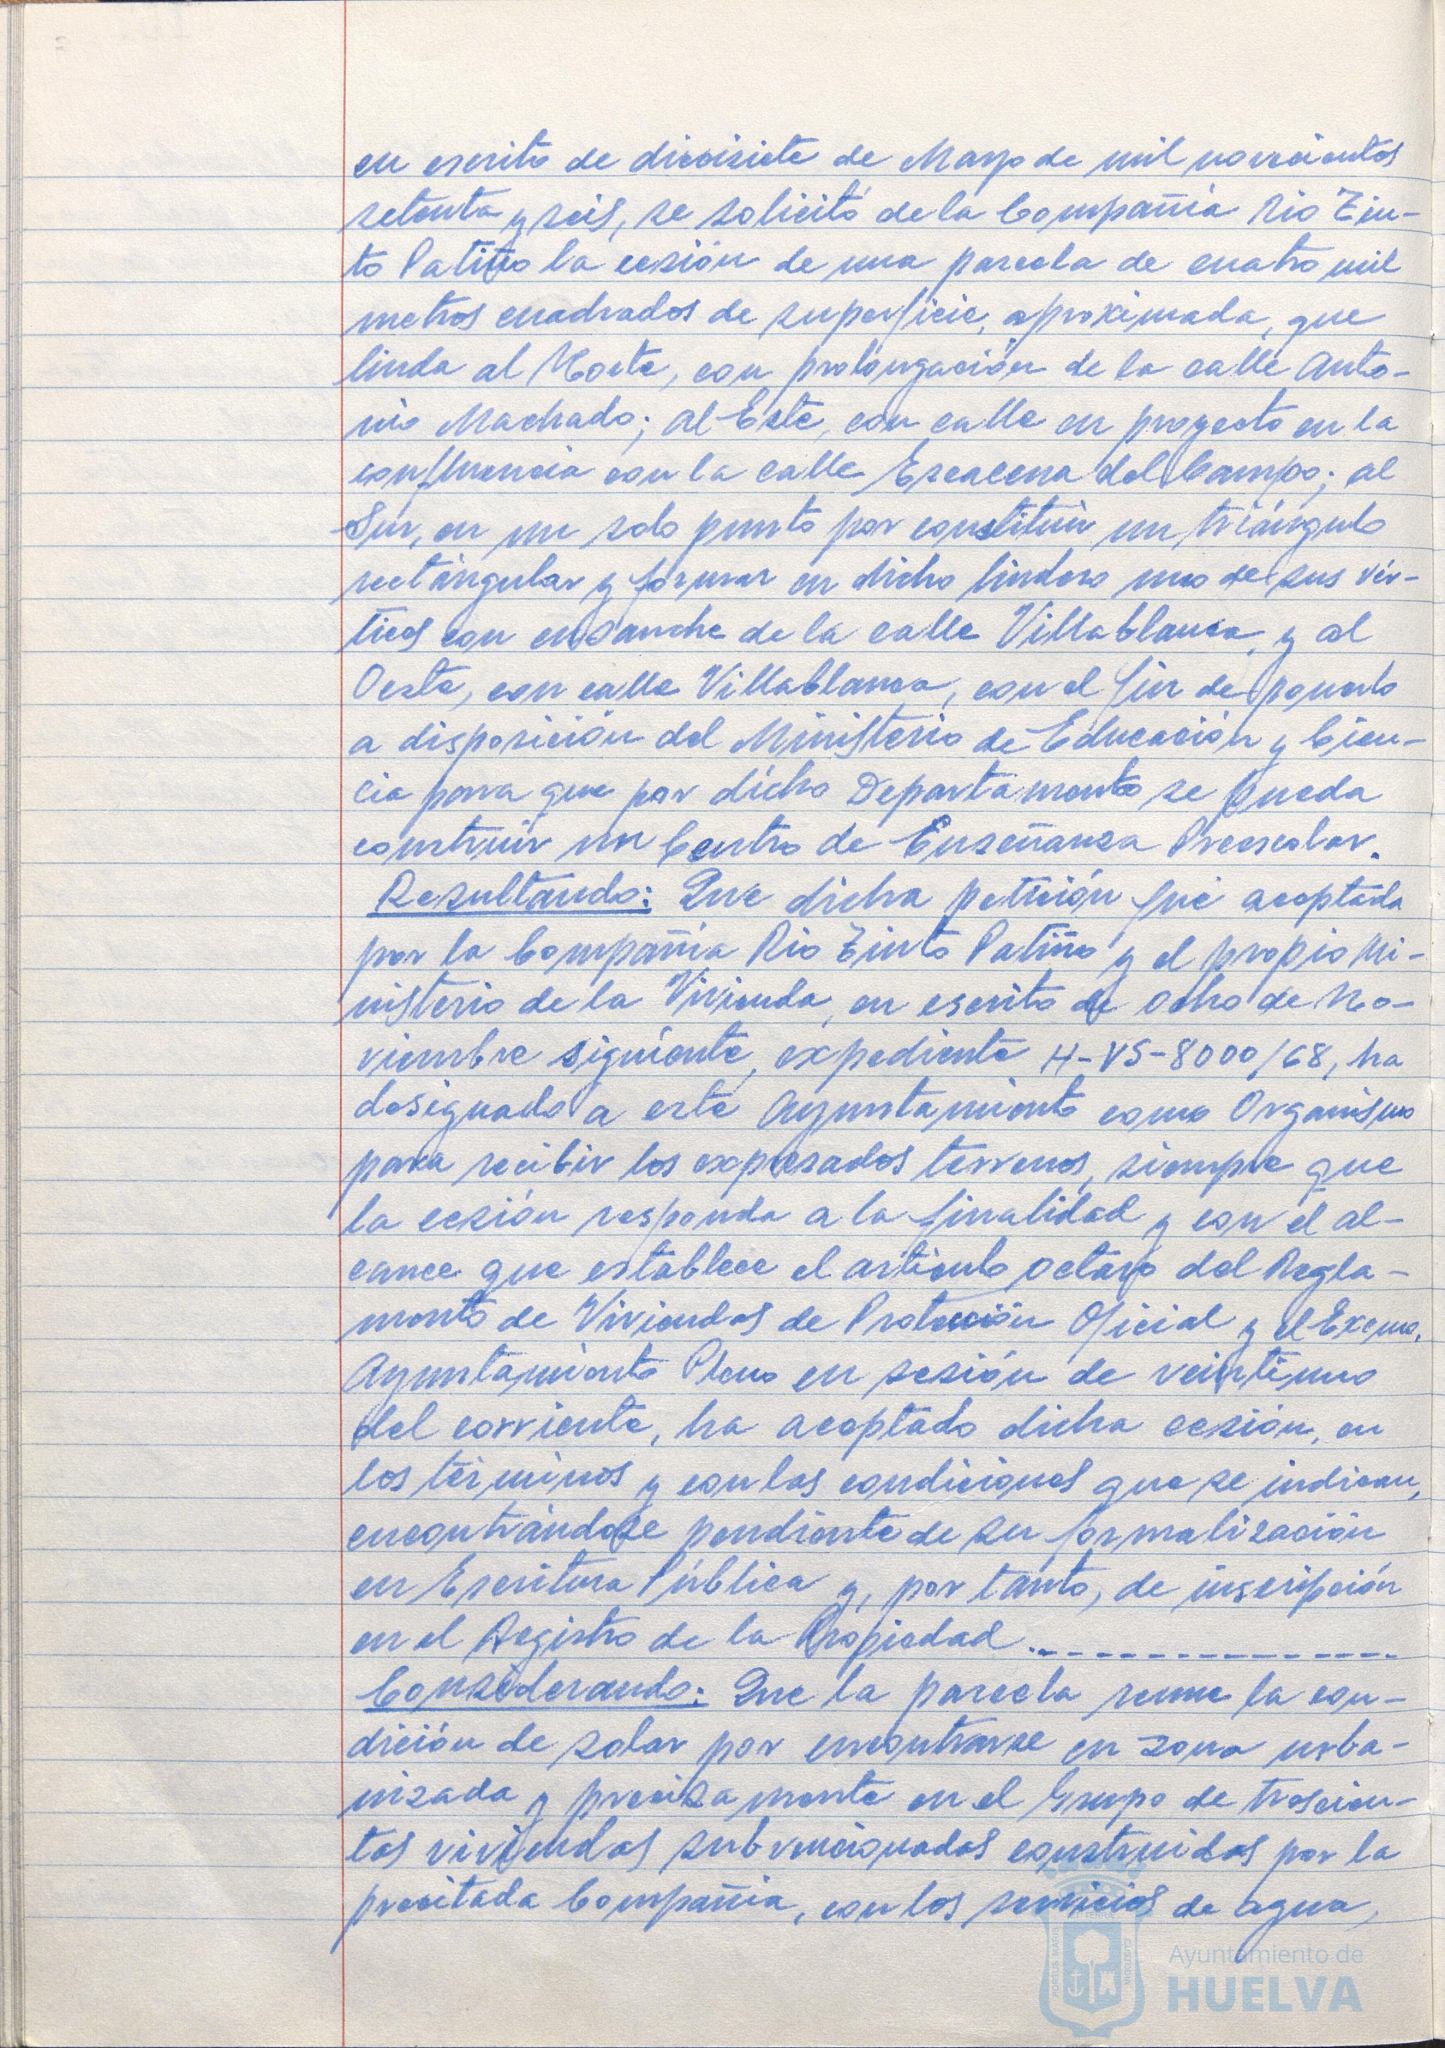 en escrito de diecisiete de Mayo de mil novecientos
setenta y seis, se solicitó de la Compañía Rio Tin-
to Patiño la cesión de una parcela de cuatro mil
metros cuadrados de superficie, aproximada, que
linda al Norte, con prolongación de la calle Anto-
nio Machado; al Este, con calle en proyecto en la
confluencia con la calle Escacena del Campo; al
Sur, en un solo punto por constituir un triángulo
rectángular y formar en dicho lindero uno de sus vér-
tices con ensanche de la calle Villablanca, y al
Oeste, con calle Villablanca, con el fin de ponerlo
a disposición del Ministerio de Educación y Cien-
cia para que por dicho Departamento se pueda
construir un Centro de Enseñanza Preescolar.
Resultando: Que dicha petición fué aceptada
por la Compañía Rio Tinto Patiño y el propio Mi-
nisterio de la Vivienda, en escrito de ocho de No-
viembre siguiente, expediente H-VS-8000/68, ha
designado a este Ayuntamiento como Organismo
para recibir los expresados terrenos, siempre que
la cesión responda a la finalidad y con el al-
cance que establece el artículo octavo del Regla-
mento de Viviendas de Protección Oficial y el Excmo.
Ayuntamiento Pleno en sesión de veintiuno
del corriente, ha aceptado dicha cesión, en
los términos y con las condiciones que se indican,
encontrándose pendiente de su formalización
en Escritura Pública y, por tanto, de inscripción
en el Registro de la Propiedad.
Considerando: Que la parcela reune la con-
dición de solar por encontrarse en zona urba-
nizada y precisamente en el Grupo de trescien-
tas viviendas subvencionadas construidas por la
precitada Compañía, con los servicios de agua,
Ayuntamiento de
HUELVA